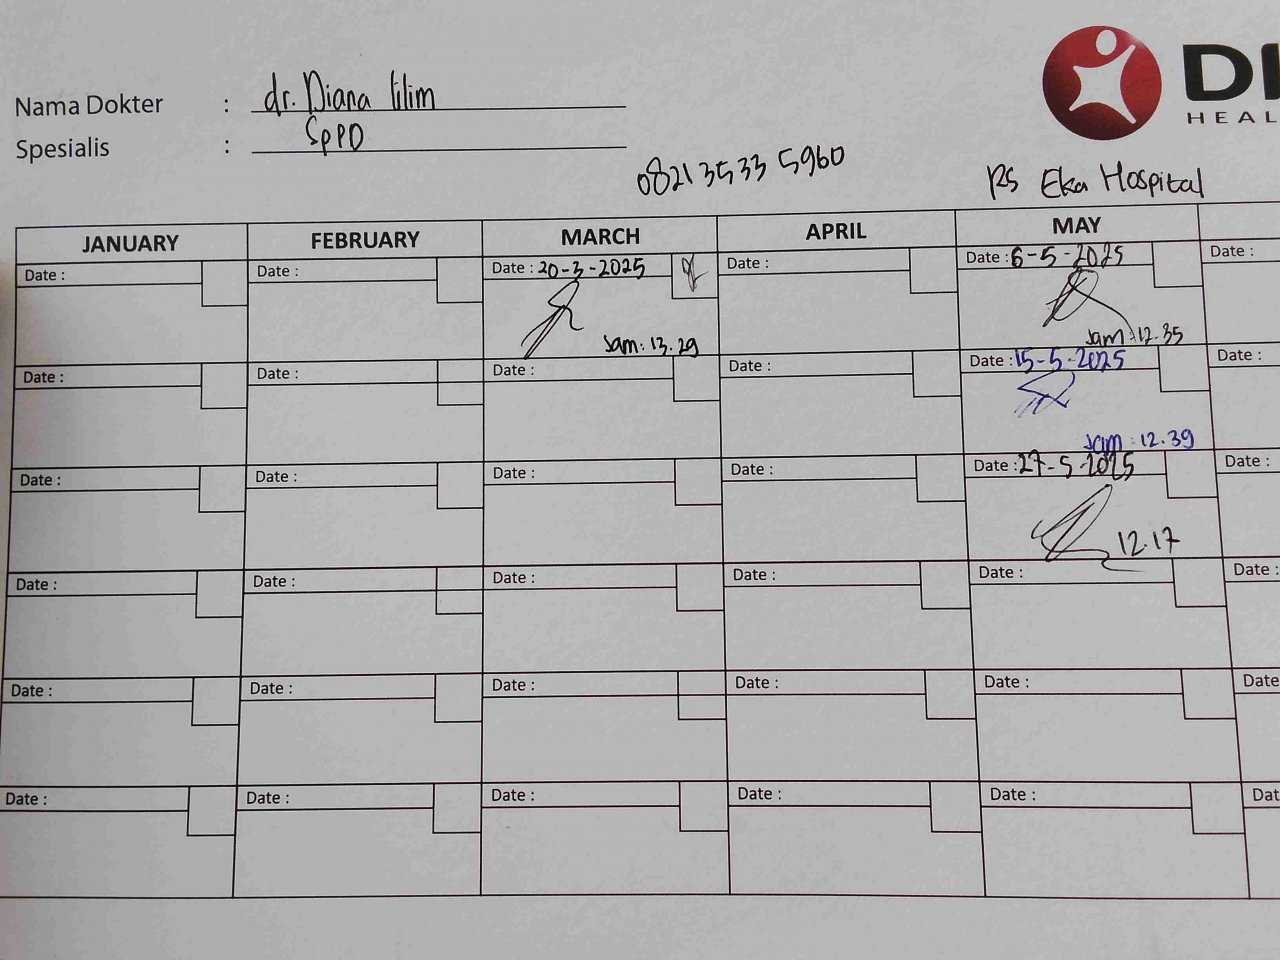 Nama Dokter : dr. Diana Lilim
Spesialis : SpPD
DI
HEAL
0821 3533 5960
RS Eka Hospital
JANUARY FEBRUARY MARCH APRIL MAY
Date : Date : Date : 20-3-2025 Date : Date : 6-5-2025 Date :
Jam : 13.29 Jam : 12.35
Date : Date : Date : Date : Date : 15-5-2025 Date :
Jam : 12.39
Date : Date : Date : Date : Date : 27-5-2025 Date :
12.17
Date : Date : Date : Date : Date : Date :
Date : Date : Date : Date : Date : Date
Date : Date : Date : Date : Date : Dat